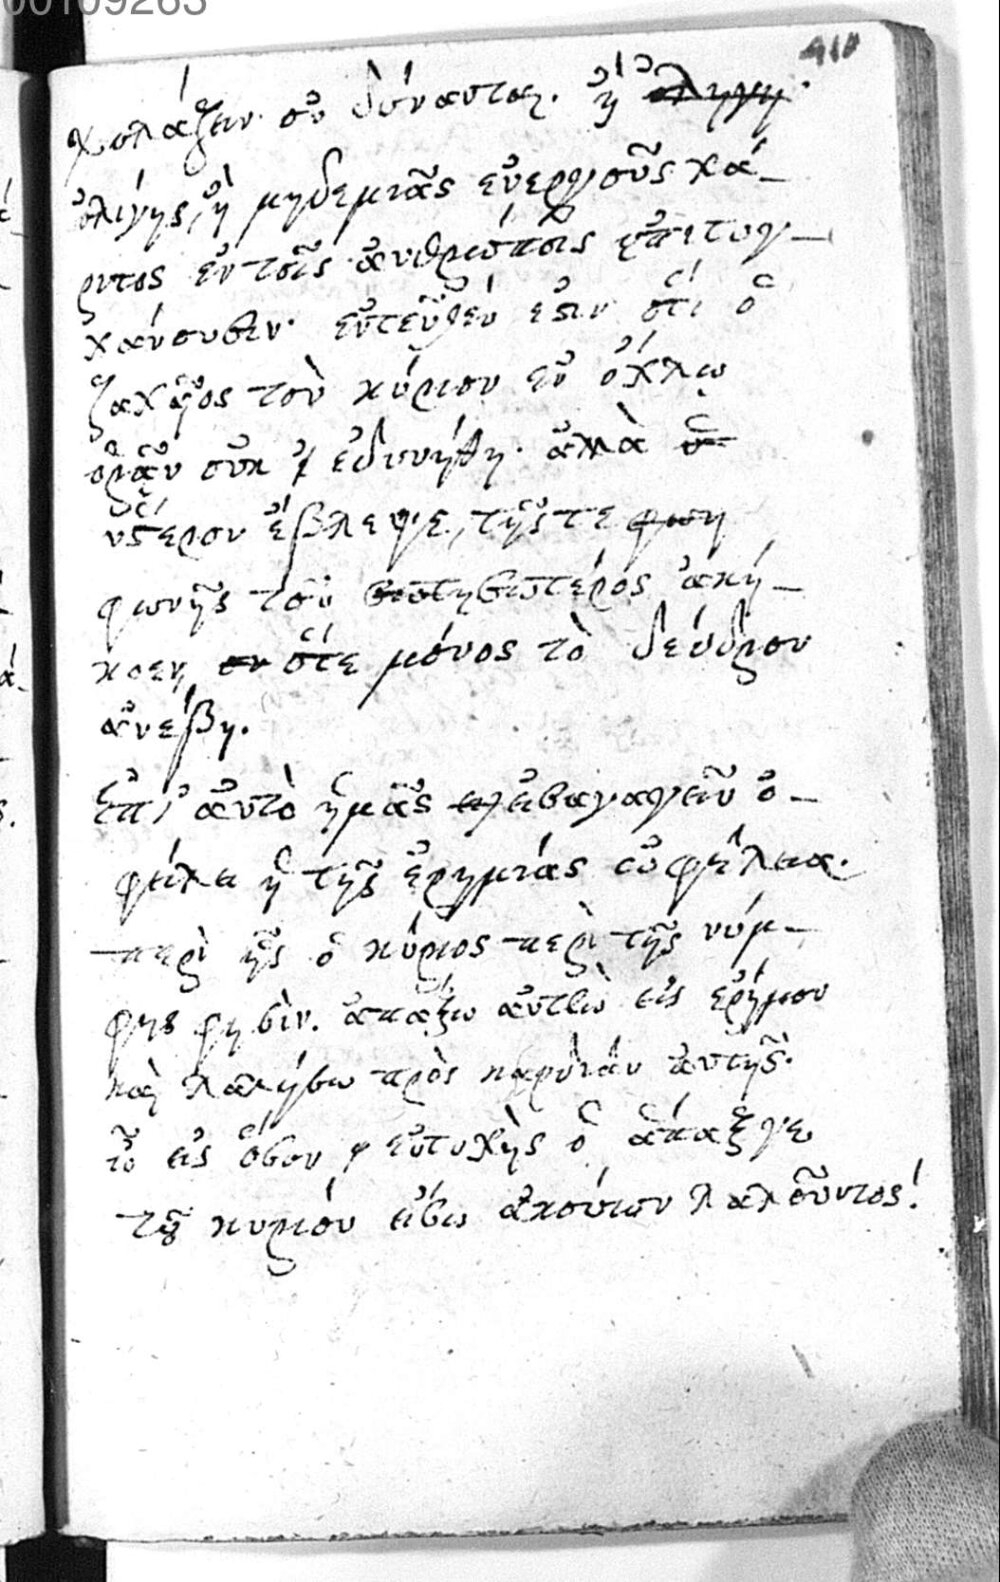 00109263
410
σχολάζειν οὐ δύνανται. ἢ ὀλίγη
ὀλίγης, ἢ μηδεμιᾶς εὐεργοῦς χά-
ριτος ἐν τοῖς ἀνθρώποις ἐπιτυγ-
χάνουσιν. ἐντεῦθέν ἐστιν ὅτι ὁ
ζακχαῖος τὸν κύριον ἐν ὄχλῳ
ὁρᾷν οὐκ ἐδυνήθη. ἀλλὰ
ὕστερον ἔβλεψε, τῆς τε φωνη
φωνῆς τοῦ σωτῆρος ἀκή-
κοεν, ὅτε μόνος τὸ δένδρον
ἀνέβη.
Ἐπὶ αὐτὸ ἡμᾶς εἰσαγαγεῖν ὀ-
φείλει ἡ τῆς ἐρημίας ὠφέλεια.
περὶ ἧς ὁ κύριος περὶ τῆς νύμ-
φης φησὶν. ἀπάξω αὐτὴν εἰς ἐρήμον
καὶ λαλήσω πρὸς καρδίαν αὐτῆς.
ὢ εἰς ὅσον εὐτυχὴς ὁ
τοῦ κυρίου ἔσω ἀκούων λαλοῦντος!